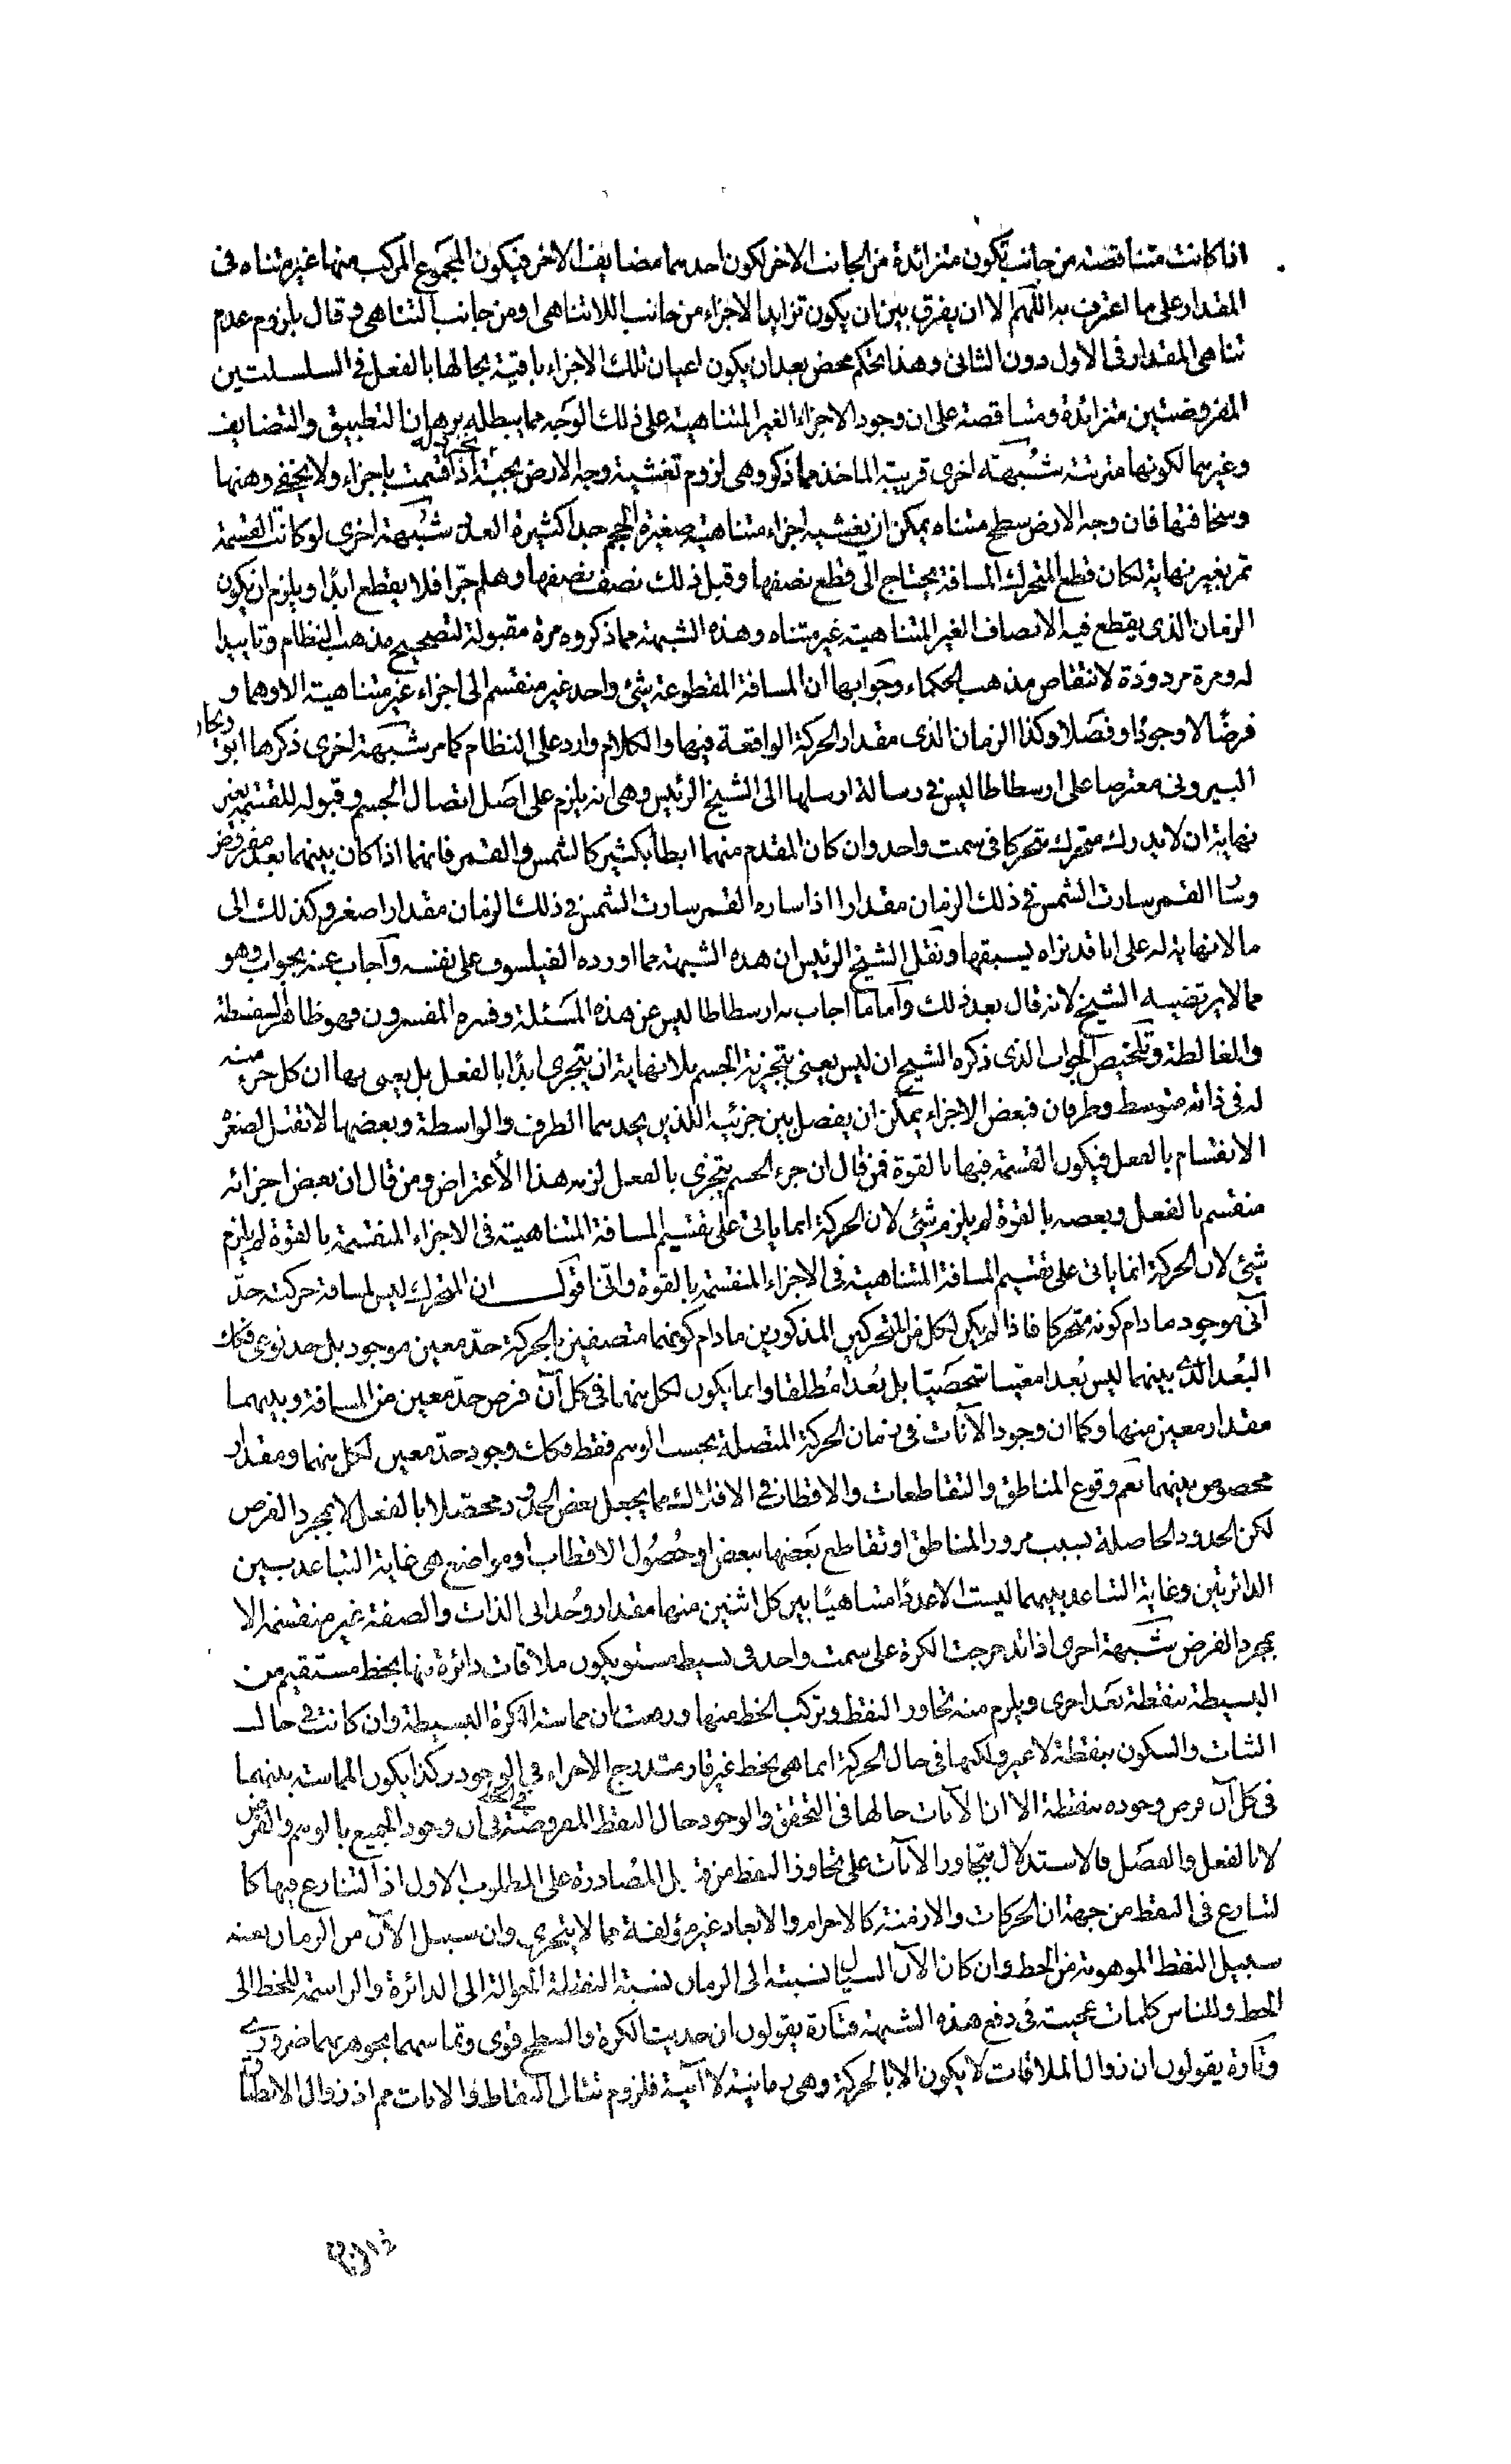 اذا كانت متناقصة من جانب تكون متزائدة من الجانب الاخر لكون احدهما مضايف الاخر فيكون المجموع المركب منها غير متناه فى
المقدار على ما اعترف به اللهم الا ان يفرق بين ان يكون تزايد الاجزاء من جانب اللاتناهى او من جانب التناهى و قال بلزوم عدم
تناهى المقدار فى الاول دون الثانى وهذا تحكم محض بعد ان يكون اعيان تلك الاجزاء باقية بحالها بالفعل فى السلسلتين
المفروضتين متزائدة ومتناقصة على ان وجود الاجزاء الغير المتناهية على ذلك الوجه مما يبطله برهان التطبيق والتضايف
وغيرهما لكونها مترتبة شبهة اخرى قريبة الماخذ مما ذكر وهى لزوم تغشية وجه الارض بحبة اذا قسمت باجزاء ولا يخفى وهنها
وسخافتها فان وجه الارض سطح متناه يمكن ان يغشيه اجزاء متناهية صغيرة الحجم جدا كثيرة العدد شبهة اخرى لو كانت القسمة
تمر بغير نهاية لكان قطع المتحرك المسافة يحتاج الى قطع نصفها وقبل ذلك نصف نصفها وهلم جرا فلا يقطع ابدا ويلزم ان يكون
الزمان الذى يقطع فيه الانصاف الغير المتناهية غير متناه وهذه الشبهة مما ذكروه مرة مقبولة لتصحيح مذهب النظام وتاييدا
له ومرة مردودة لانتقاض مذهب الحكماء وجوابها ان المسافة المقطوعة شئ واحد غير منقسم الى اجزاء غير متناهية الا وهما و
فرضا لا وجودا وفصلا وكذا الزمان الذى مقدار الحركة الواقعة فيها والكلام وارد على النظام كما مر شبهة اخرى ذكرها ابو ريحان
البيرونى معترضا على ارسطاطاليس فى رسالة ارسلها الى الشيخ الرئيس وهى انه يلزم على اصل اتصال الجسم وقبوله للقسمة بغير
نهاية ان لا يدرك متحرك متحركا فى سمت واحد وان كان المقدم منهما ابطأ بكثير كالشمس والقمر فانهما اذا كان بينهما بعد مفروض
وسار القمر سارت الشمس فى ذلك الزمان مقدارا اذا ساره القمر سارت الشمس فى ذلك الزمان مقدارا اصغر وكذلك الى
ما لا نهاية له على انا قد نراه يسبقها ونقل الشيخ الرئيس ان هذه الشبهة مما اورده الفيلسوف على نفسه واجاب عنه بجواب وهو
مما لا يرتضيه الشيخ لانه قال بعد ذلك واما ما اجاب به ارسطاطاليس عن هذه المسئلة وفسره المفسرون فهو ظاهر السفسطة
والمغالطة وتلخيص الجواب الذى ذكره الشيخ ان ليس يعنى بتجزية الجسم بلا نهاية ان يتجزى ابدا بالفعل بل يعنى بها ان كل جزء منه
له فى ذاته متوسط وطرفان فبعض الاجزاء يمكن ان يفصل بين جزئيه اللذين يحدهما الطرف والواسطة وبعضها لا تقبل لصغره
الانقسام بالفعل فيكون القسمة فيها بالقوة فمن قال ان جزء الجسم يتجزى بالفعل لزمه هذا الاعتراض ومن قال ان بعض اجزائه
منقسم بالفعل وبعضه بالقوة لم يلزم شئ لان الحركة انما ياتى على تقسيم المسافة المتناهية فى الاجزاء المنقسمة بالقوة لم يلزم
شئ لان الحركة انما ياتى على تقسيم المسافة المتناهية فى الاجزاء المنقسمة بالقوة وانا اقول ان المتحرك ليس لمسافة حركته حد
آنى موجود ما دام كونه متحركا فاذا لم يكن لكل من المتحركين المذكورين ما دام كونهما متصفين بالحركة حد معين موجود بل حد نوعى فكك
البعد الذى بينهما ليس بعدا معينا شخصيا بل بعدا مطلقا وانما يكون لكل منهما فى كل آن فرض حد معين من المسافة وبينهما
مقدار معين منها وكما ان وجود الآنات فى زمان الحركة المتصلة بحسب الوهم فقط فكك وجود حد معين لكل منهما ومقدار
مخصوص بينهما نعم وقوع المناطق والتقاطعات والاقطاب فى الافلاك مما يجعل بعض الحدود محصلا بالفعل لا بمجرد الفرض
لكن الحدود الحاصلة بسبب مرور المناطق او تقاطع بعضها ببعض او حصول الاقطاب او مواضع هى غاية التباعد بين
الدائرتين وغاية التباعد بينهما ليست الا عددا متناهيا بين كل اثنين منها مقدار وحدانى الذات والصفة غير منقسمة الا
بمجرد الفرض شبهة اخرى اذا تدحرجت الكرة على سمت واحد فى بسيط مستو يكون ملاقات دائرة منها بخط مستقيم من
البسيطة بنقطة بعد اخرى ويلزم منه تجاور النقط وتركب الخط منها ورفعت بان مماسة الكرة البسيطة وان كانت فى حال
الثبات والسكون بنقطة لا غير ولكنها فى حال الحركة انما هى بخط غير قار متدرج الاجزاء فى الوجود وكذا يكون المماسة بينهما
فى كل آن فرض وجوده بنقطة الا ان الآنات حالها فى التحقق والوجود حال النقط المفروضة فى ان وجود الجميع بالوهم والفرض
لا بالفعل والفصل فالاستدلال بتجاور الآنات على تجاور النقط من قبيل المصادرة على المطلوب الاول اذ التنازع فيها كا
لتنازع فى النقط من جهة ان الحركات والازمنة كالاجرام والابعاد غير مؤلفة مما لا يتجزى وان سبيل الآن من الزمان بعينه
سبيل النقط الموهومة من الخط وان كان الآن السيال نسبته الى الزمان نسبة النقطة الجوالة الى الدائرة والراسمة للخط الى
الخط وللناس كلمات عجيبة فى دفع هذه الشبهة فتارة يقولون ان حديث الكرة والسطح قوى وتماسهما بجوهريهما ضرورى
وتارة يقولون ان زوال الملاقات لا يكون الا بالحركة وهى زمانية لا آنية فلزوم تتالى النقاط والانات مم اذ زوال الانطباق